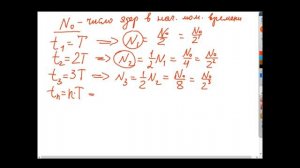 N₀ - число ядер в нач. мом. времени
t₁ = T ⟹ N₁ = N₀/2 = N₀/2¹
t₂ = 2T ⟹ N₂ = 1/2 N₁ = N₀/4 = N₀/2²
t₃ = 3T ⟹ N₃ = 1/2 N₂ = N₀/8 = N₀/2³
tₙ = n·T =